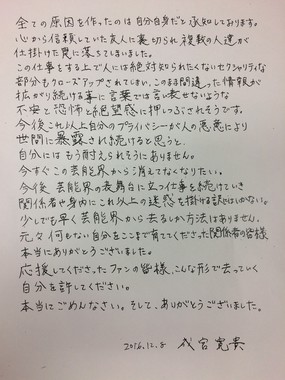 全ての原因を作ったのは自分自身だと承知しております。
心から信頼していた友人に裏切られ、複数の人達が
仕掛けた罠に落ちてしまいました。
この仕事をする上で人には絶対知られたくないセクシャリティな
部分もクローズアップされてしまい、このまま間違った情報が
拡がり続ける事に言葉では言い表せないような
不安と恐怖と絶望感に押しつぶされそうです。
今後これ以上自分のプライバシーが人の悪意により
世間に暴露され続けると思うと、
自分にはもう耐えられそうにありません。
今すぐこの芸能界から消えてなくなりたい。
今後芸能界の表舞台に立つ仕事を続けていき
関係者や身内にこれ以上の迷惑を掛ける訳にはいかない。
少しでも早く芸能界から去るしか方法はありません。
元々何もない自分をここまで育ててくださった関係者の皆様
本当にありがとうございました。
応援してくださったファンの皆様、こんな形で去っていく
自分を許してください。
本当にごめんなさい。そして、ありがとうございました。
2016.12.8 成宮寛貴